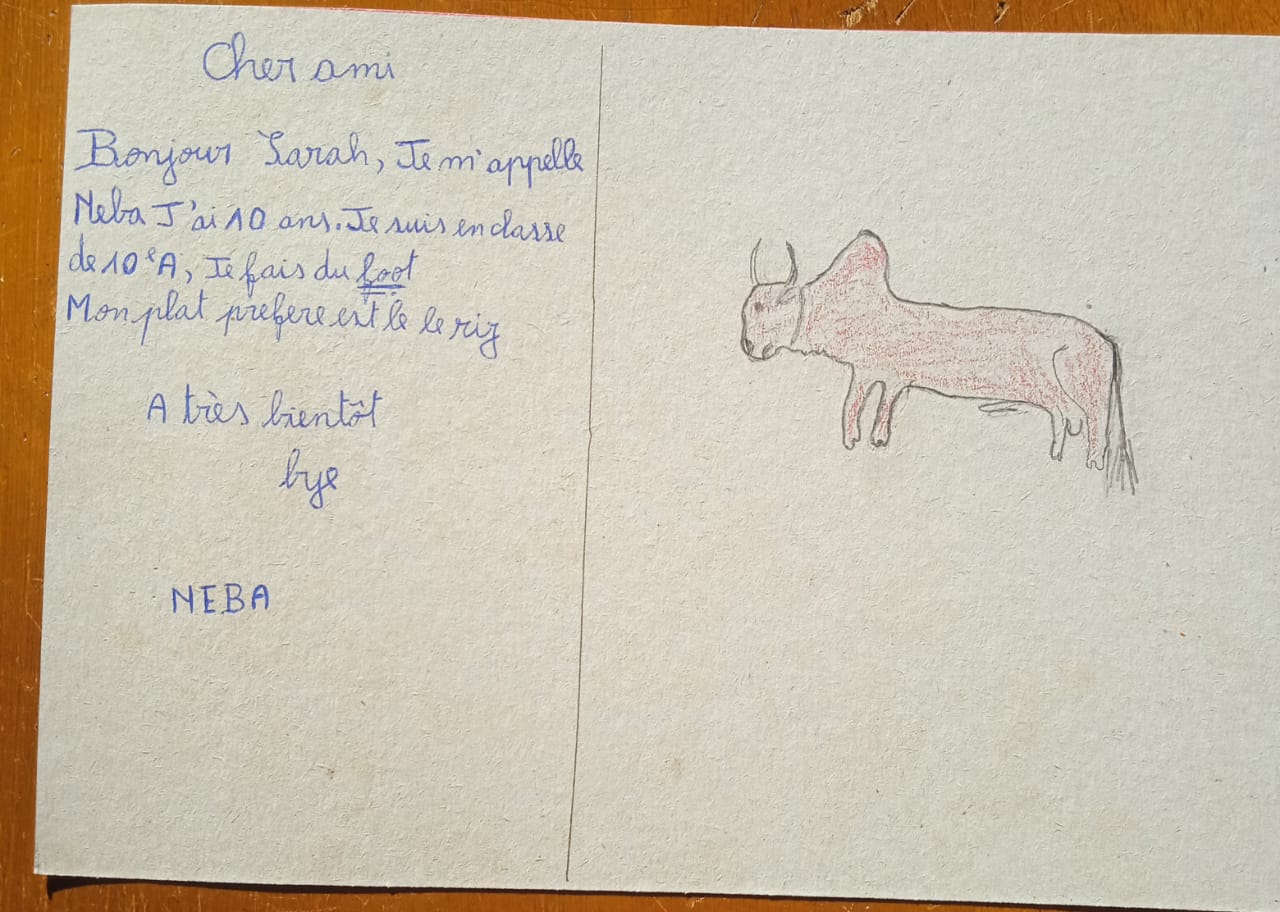 Cher ami
Bonjour Sarah, Je m'appelle
Neba J'ai 10 ans. Je suis en classe
de 10e A, Je fais du foot
Mon plat prefere est le le riz
A très bientôt
bye
NEBA